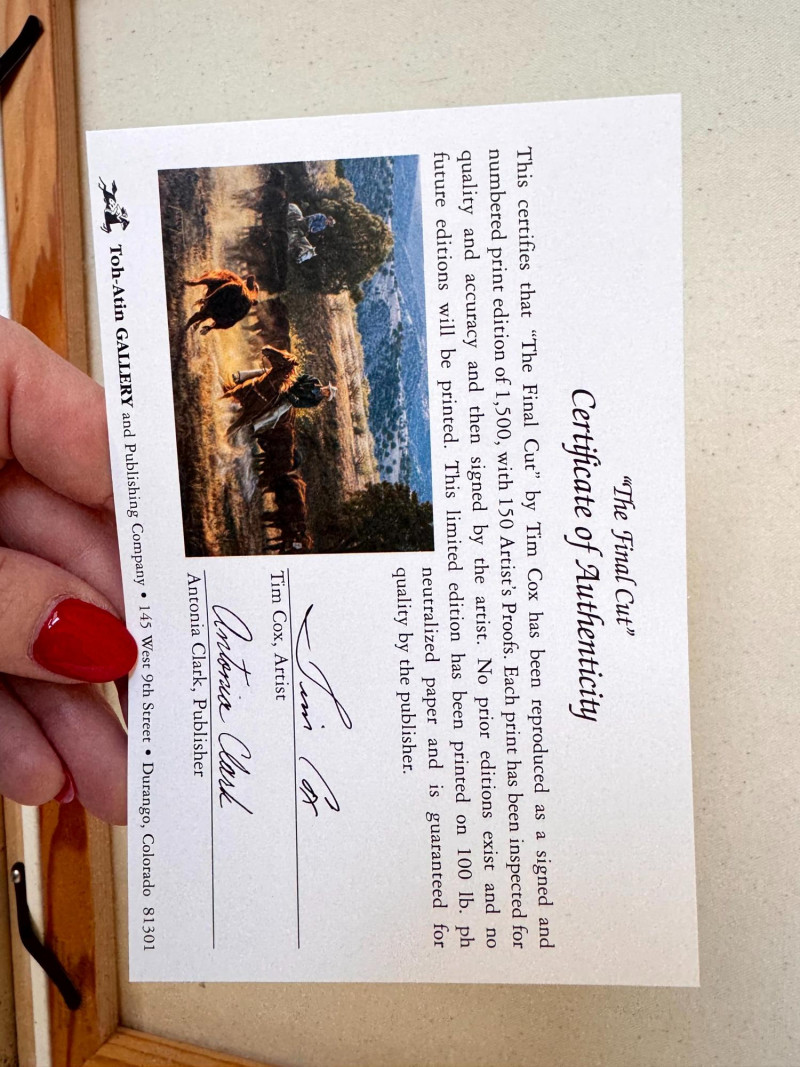 “The Final Cut”
Certificate of Authenticity
This certifies that “The Final Cut” by Tim Cox has been reproduced as a signed and
numbered print edition of 1,500, with 150 Artist’s Proofs. Each print has been inspected for
quality and accuracy and then signed by the artist. No prior editions exist and no
future editions will be printed. This limited edition has been printed on 100 lb. ph
neutralized paper and is guaranteed for
quality by the publisher.
Tim Cox
Tim Cox, Artist
Antonia Clark
Antonia Clark, Publisher
Toh-Atin GALLERY and Publishing Company • 145 West 9th Street • Durango, Colorado 81301